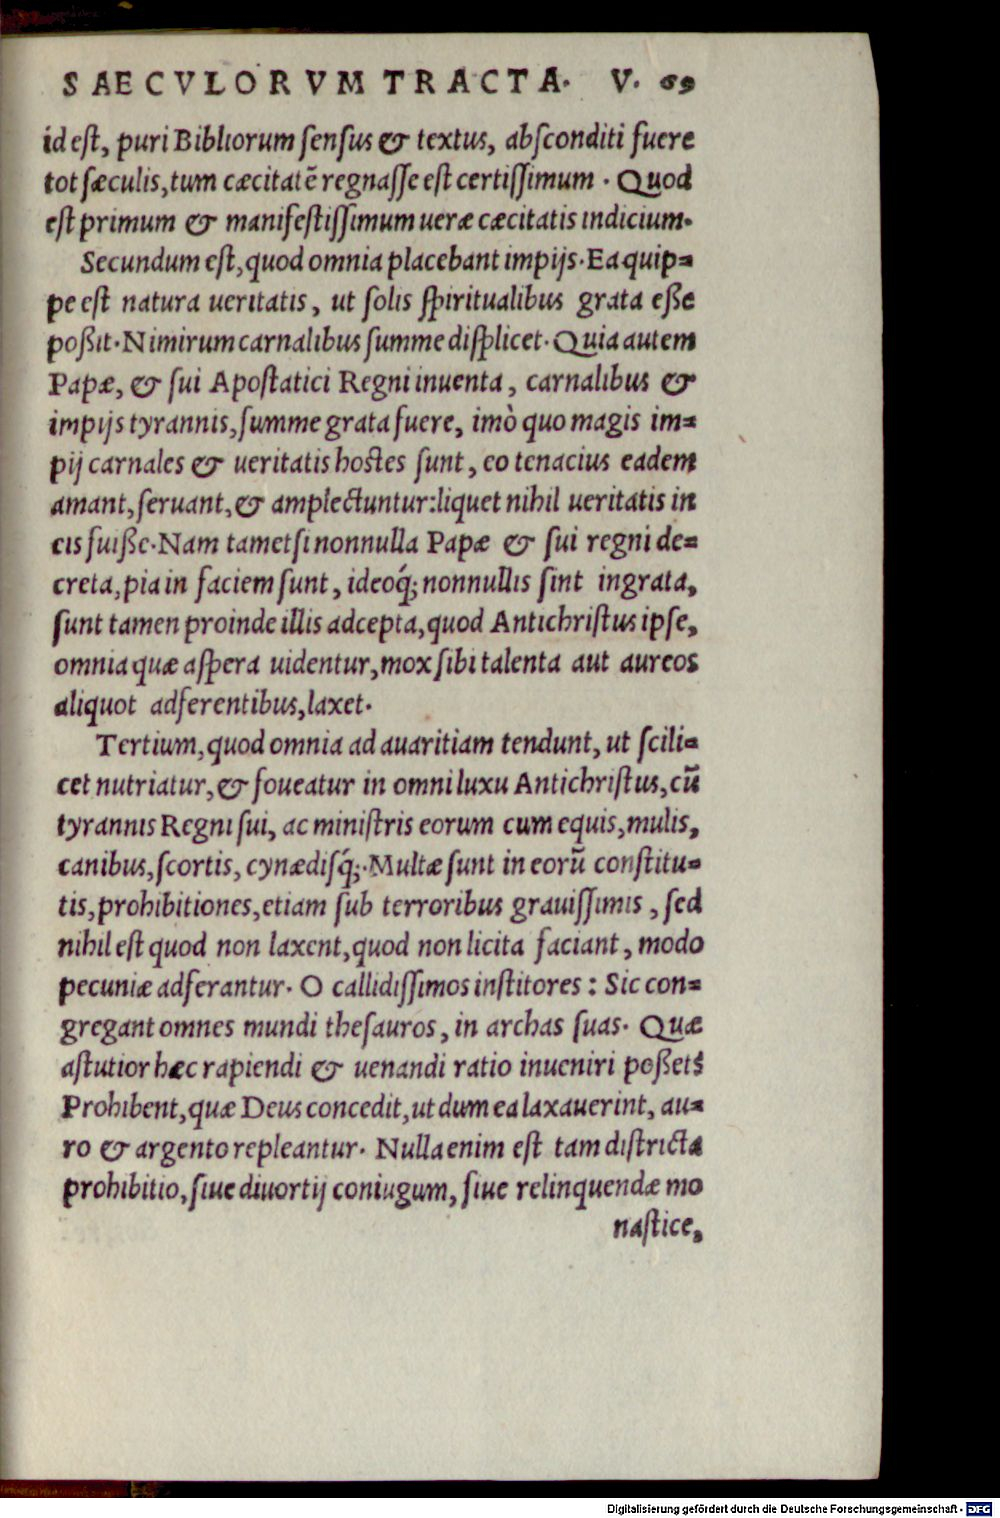 SAECVLORVM TRACTA. V. 69
id est, puri Bibliorum sensus & textus, absconditi fuere
tot sæculis, tum cæcitatẽ regnasse est certissimum . Quod
est primum & manifestissimum ueræ cæcitatis indicium.
Secundum est, quod omnia placebant impijs. Ea quip=
pe est natura ueritatis, ut solis spiritualibus grata eße
poßit. Nimirum carnalibus summe displicet. Quia autem
Papæ, & sui Apostatici Regni inuenta, carnalibus &
impijs tyrannis, summe grata fuere, imò quo magis im=
pij carnales & ueritatis hostes sunt, eo tenacius eadem
amant, seruant, & amplectuntur: liquet nihil ueritatis in
eis fuiße. Nam tametsi nonnulla Papæ & sui regni de=
creta, pia in faciem sunt, ideoq́; nonnullis sint ingrata,
sunt tamen proinde illis adcepta, quod Antichristus ipse,
omnia quæ aspera uidentur, mox sibi talenta aut aureos
aliquot adferentibus, laxet.
Tertium, quod omnia ad auaritiam tendunt, ut scili=
cet nutriatur, & foueatur in omni luxu Antichristus, cũ
tyrannis Regni sui, ac ministris eorum cum equis, mulis,
canibus, scortis, cynædisq́;. Multæ sunt in eorũ constitu=
tis, prohibitiones, etiam sub terroribus grauissimis, sed
nihil est quod non laxent, quod non licita faciant, modo
pecuniæ adferantur. O callidissimos institores: Sic con=
gregant omnes mundi thesauros, in archas suas. Quæ
astutior hæc rapiendi & uenandi ratio inueniri poßet?
Prohibent, quæ Deus concedit, ut dum ea laxauerint, au=
ro & argento repleantur. Nulla enim est tam districta
prohibitio, siue diuortij coniugum, siue relinquendæ mo
nasticę,
Digitalisierung gefördert durch die Deutsche Forschungsgemeinschaft - DFG